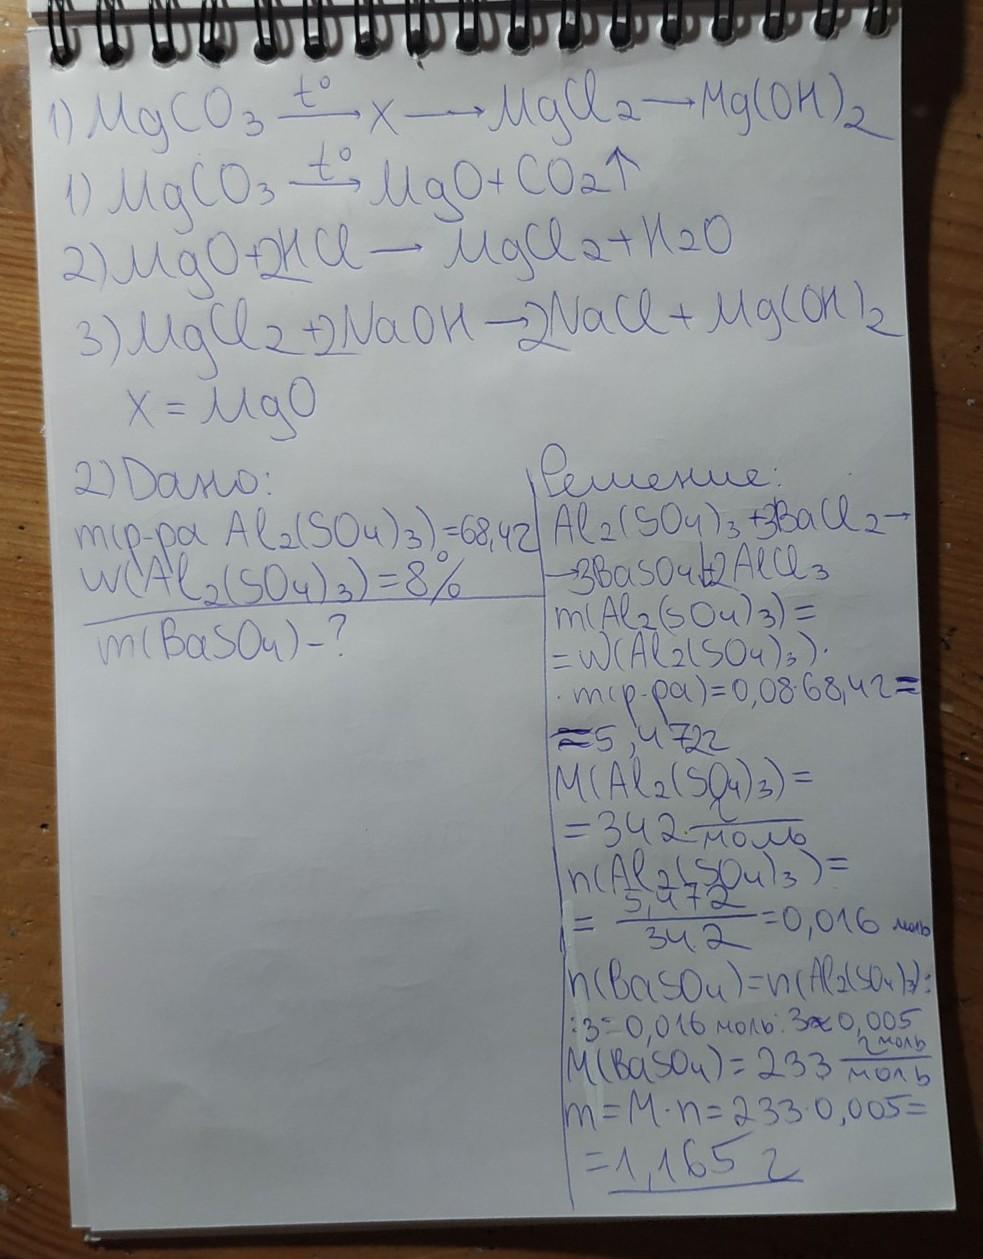 1) MgCO3 t° → X → MgCl2 → Mg(OH)2
1) MgCO3 t° → MgO + CO2↑
2) MgO + 2HCl → MgCl2 + H2O
3) MgCl2 + 2NaOH → 2NaCl + Mg(OH)2
X = MgO
2) Дано:
m(р-ра Al2(SO4)3) = 68,4г
W(Al2(SO4)3) = 8%
m(BaSO4) - ?
Решение:
Al2(SO4)3 + 3BaCl2 →
→ 3BaSO4↓ + 2AlCl3
m(Al2(SO4)3) =
= W(Al2(SO4)3) ·
· m(р-ра) = 0,08 · 68,4г =
= 5,472г
M(Al2(SO4)3) =
= 342 г/моль
n(Al2(SO4)3) =
= 5,472/342 = 0,016 моль
n(BaSO4) = n(Al2(SO4)3) :
: 3 = 0,016 моль : 3 ≈ 0,005
моль
M(BaSO4) = 233 г/моль
m = M · n = 233 · 0,005 =
= 1,165 г